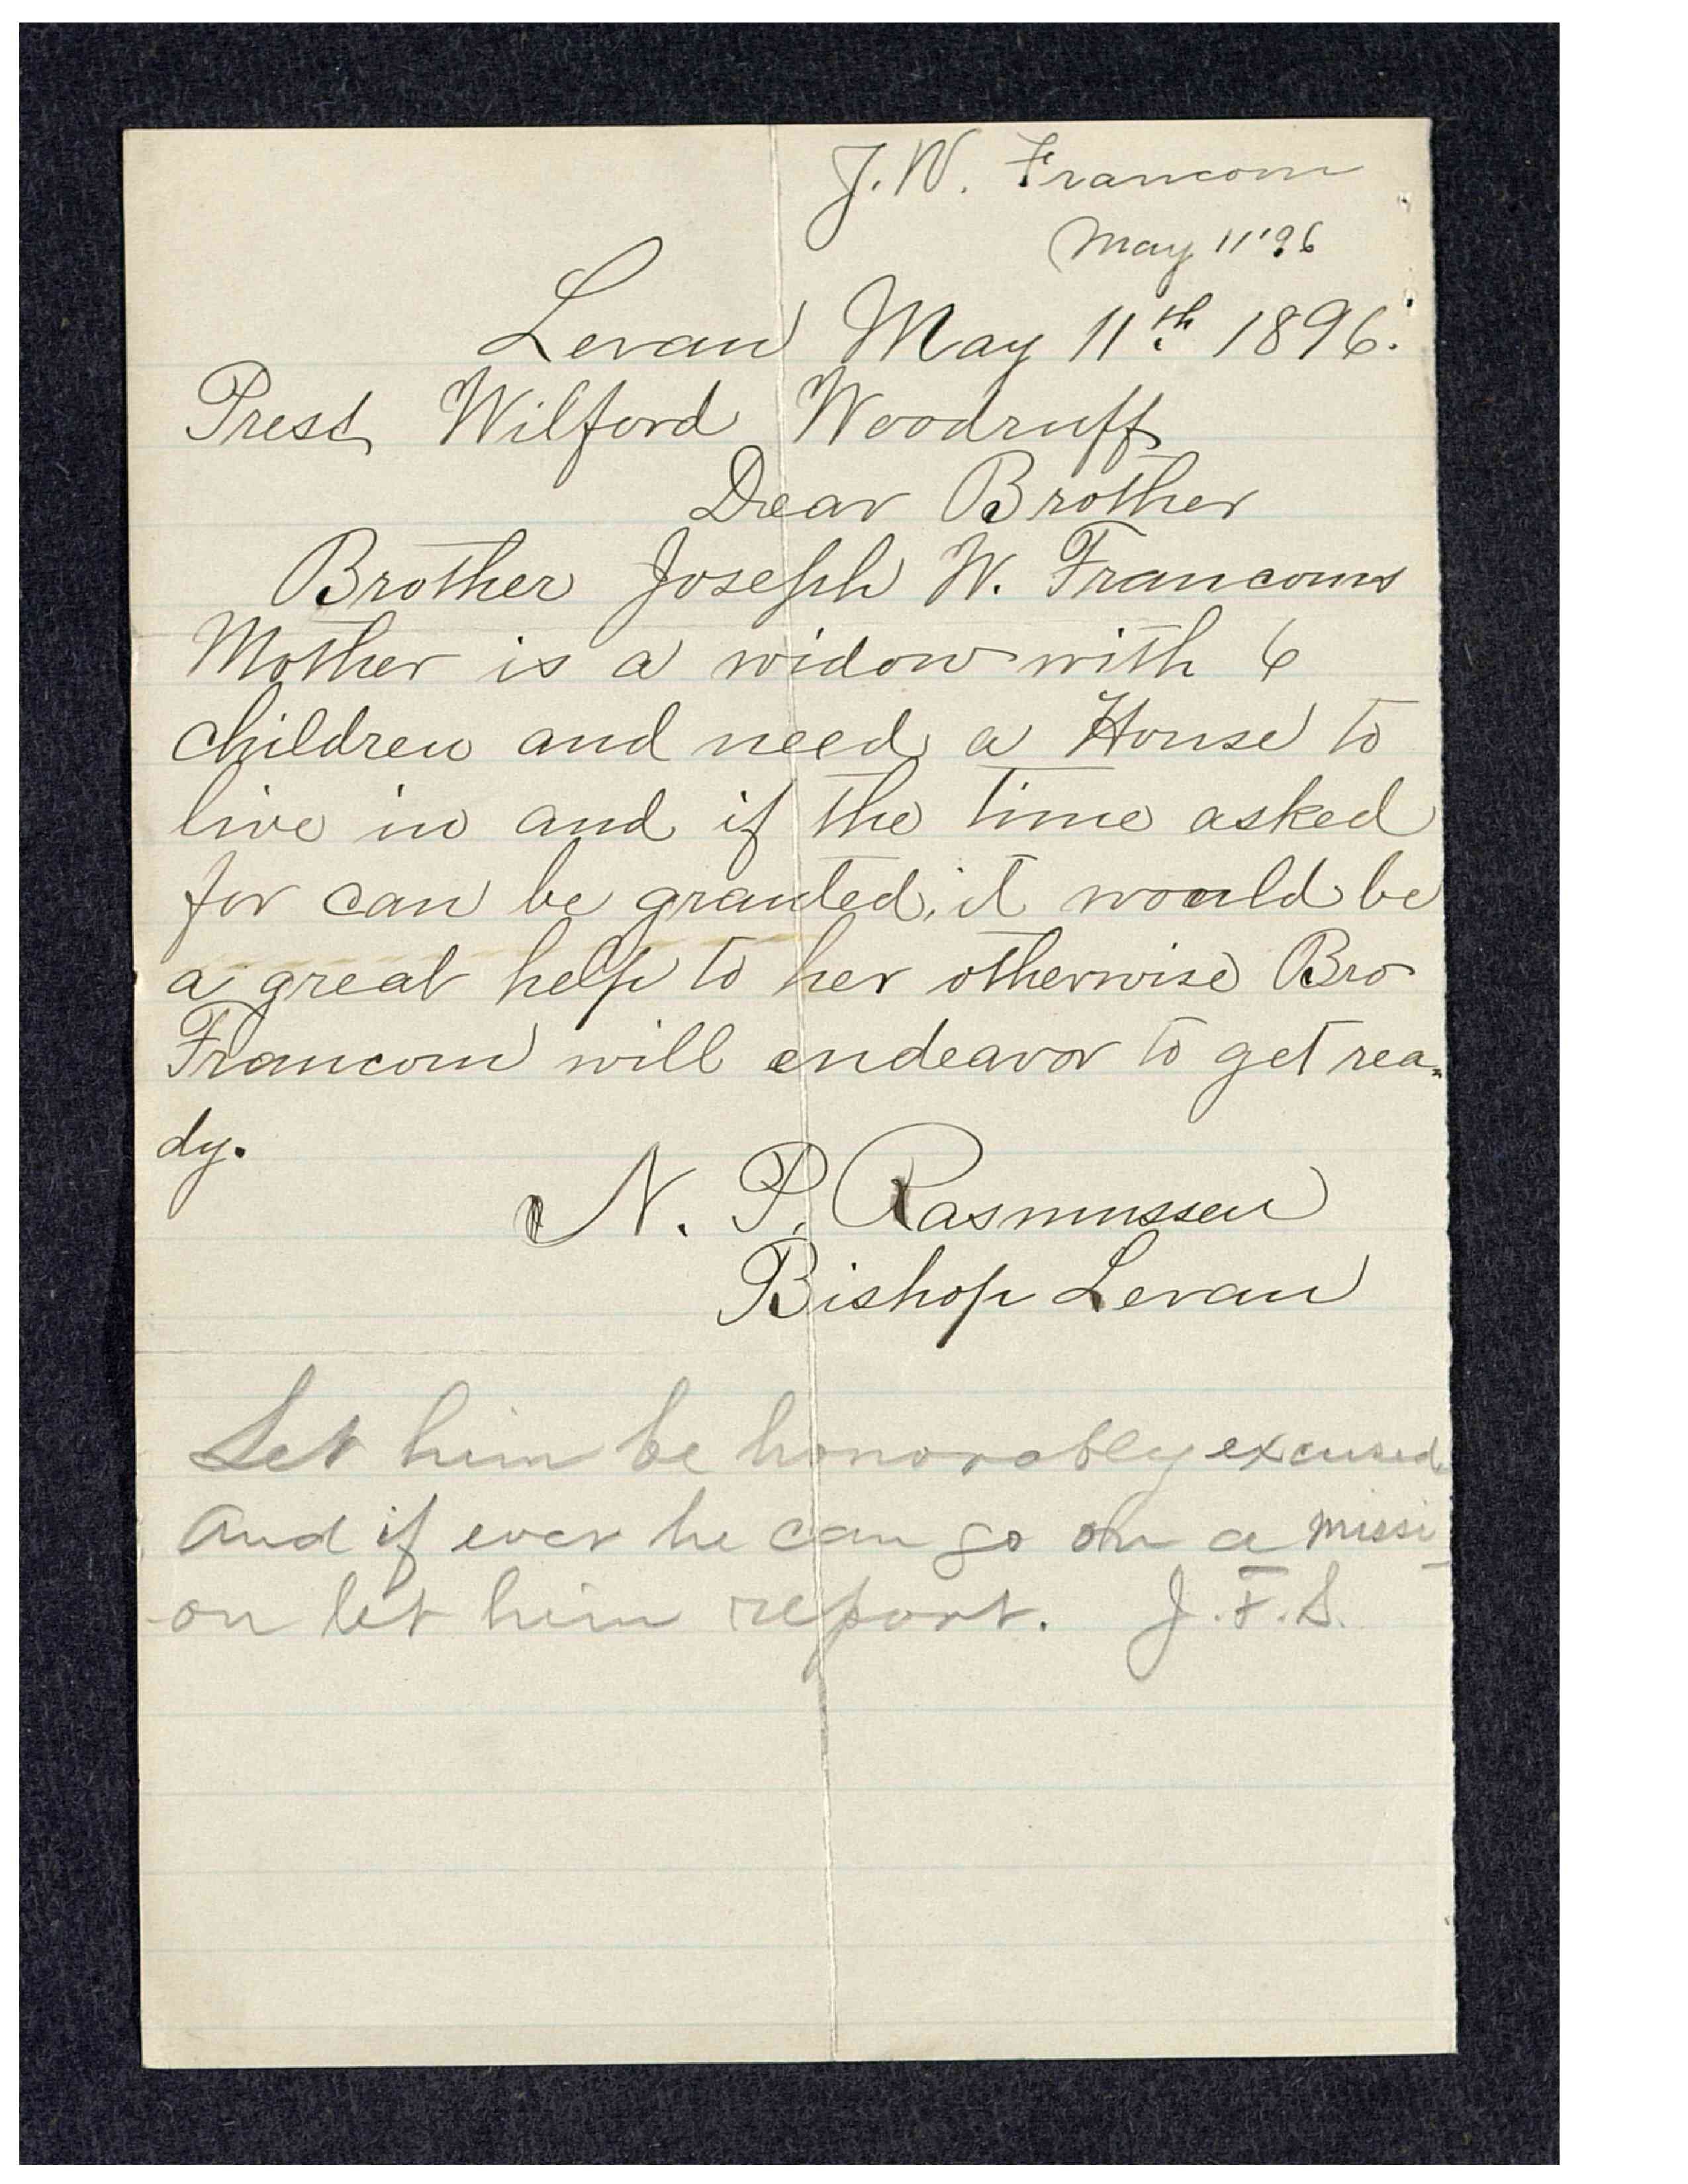 J. W. Francom
May 11 '96
Levan May 11th 1896.
Prest Wilford Woodruff
Dear Brother
Brother Joseph W. Francoms
Mother is a widow with 6
children and need a House to
live in and if the time asked
for can be granted, it would be
a great help to her otherwise Bro
Francom will endeavor to get rea-
dy.
N. P. Rasmussen
Bishop Levan
Let him be honorably excused.
And if ever he can go on a missi-
on let him report. J. F. S.